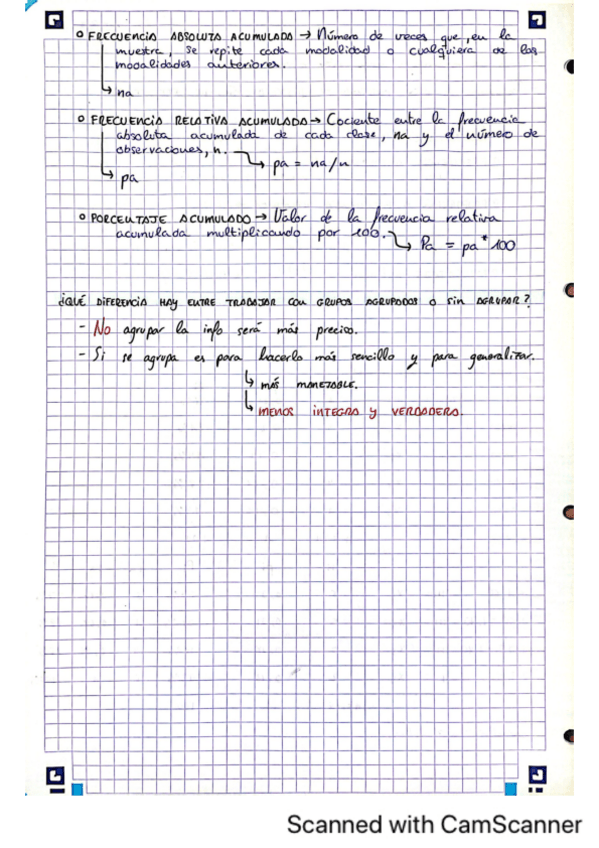 o FRECUENCIA ABSOLUTA ACUMULADA → Número de veces que, en la
muestra, se repite cada modalidad o cualquiera de las
modalidades anteriores.
↳ na
o FRECUENCIA RELATIVA ACUMULADA → Cociente entre la frecuencia
absoluta acumulada de cada clase, na y el número de
observaciones, n. ↳ pa = na/n
↳ pa
o PORCENTAJE ACUMULADO → Valor de la frecuencia relativa
acumulada multiplicando por 100. ↳ Pa = pa * 100
¿QUÉ DIFERENCIA HAY ENTRE TRABAJAR CON GRUPOS AGRUPADOS O SIN AGRUPAR?
- No agrupar la info será más preciso.
- Si se agrupa es para hacerlo más sencillo y para generalizar.
↳ MÁS MANEJABLE.
↳ MENOS INTEGRO y VERDADERO.
Scanned with CamScanner